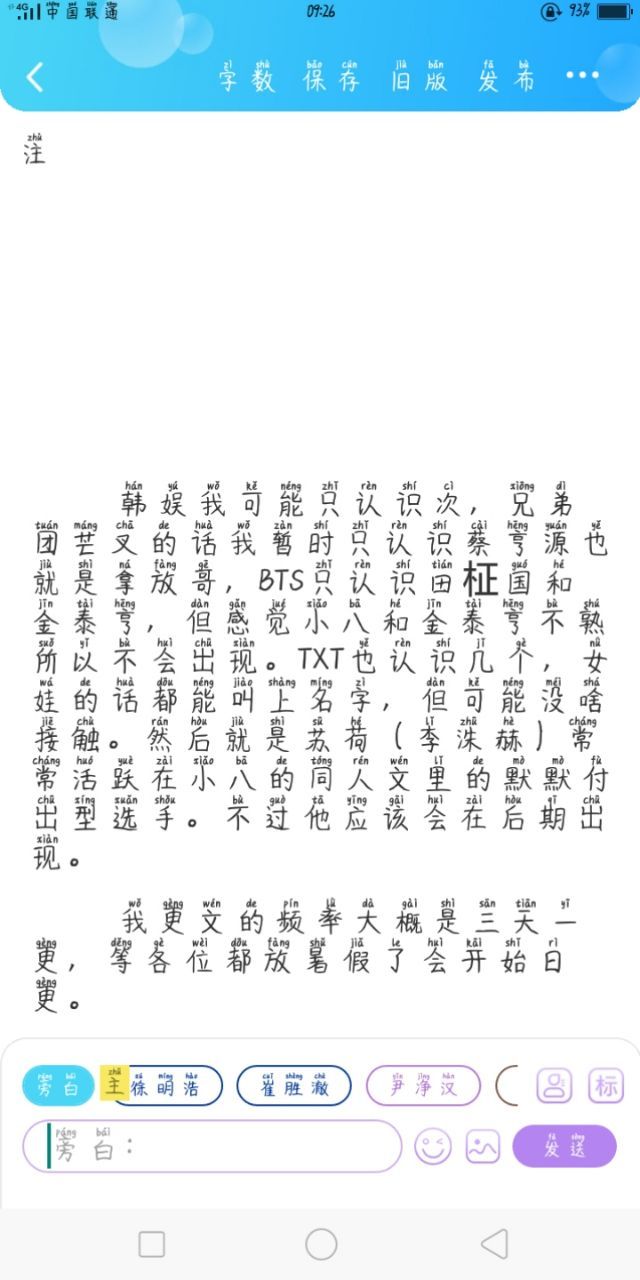 4G 中国联通 09:26 93%
字数 保存 旧版 发布
注
韩娱我可能只认识次，兄弟
团芒叉的话我暂时只认识蔡亨源也
就是拿放哥，BTS只认识田柾国和
金泰亨，但感觉小八和金泰亨不熟
所以不会出现。TXT也认识几个，女
娃的话都能叫上名字，但可能没啥
接触。然后就是苏荷（李洙赫）常
常活跃在小八的同人文里的默默付
出型选手。不过他应该会在后期出
现。
我更文的频率大概是三天一
更，等各位都放暑假了会开始日
更。
旁白 主 徐明浩 崔胜澈 尹净汉 标
旁白： 发送